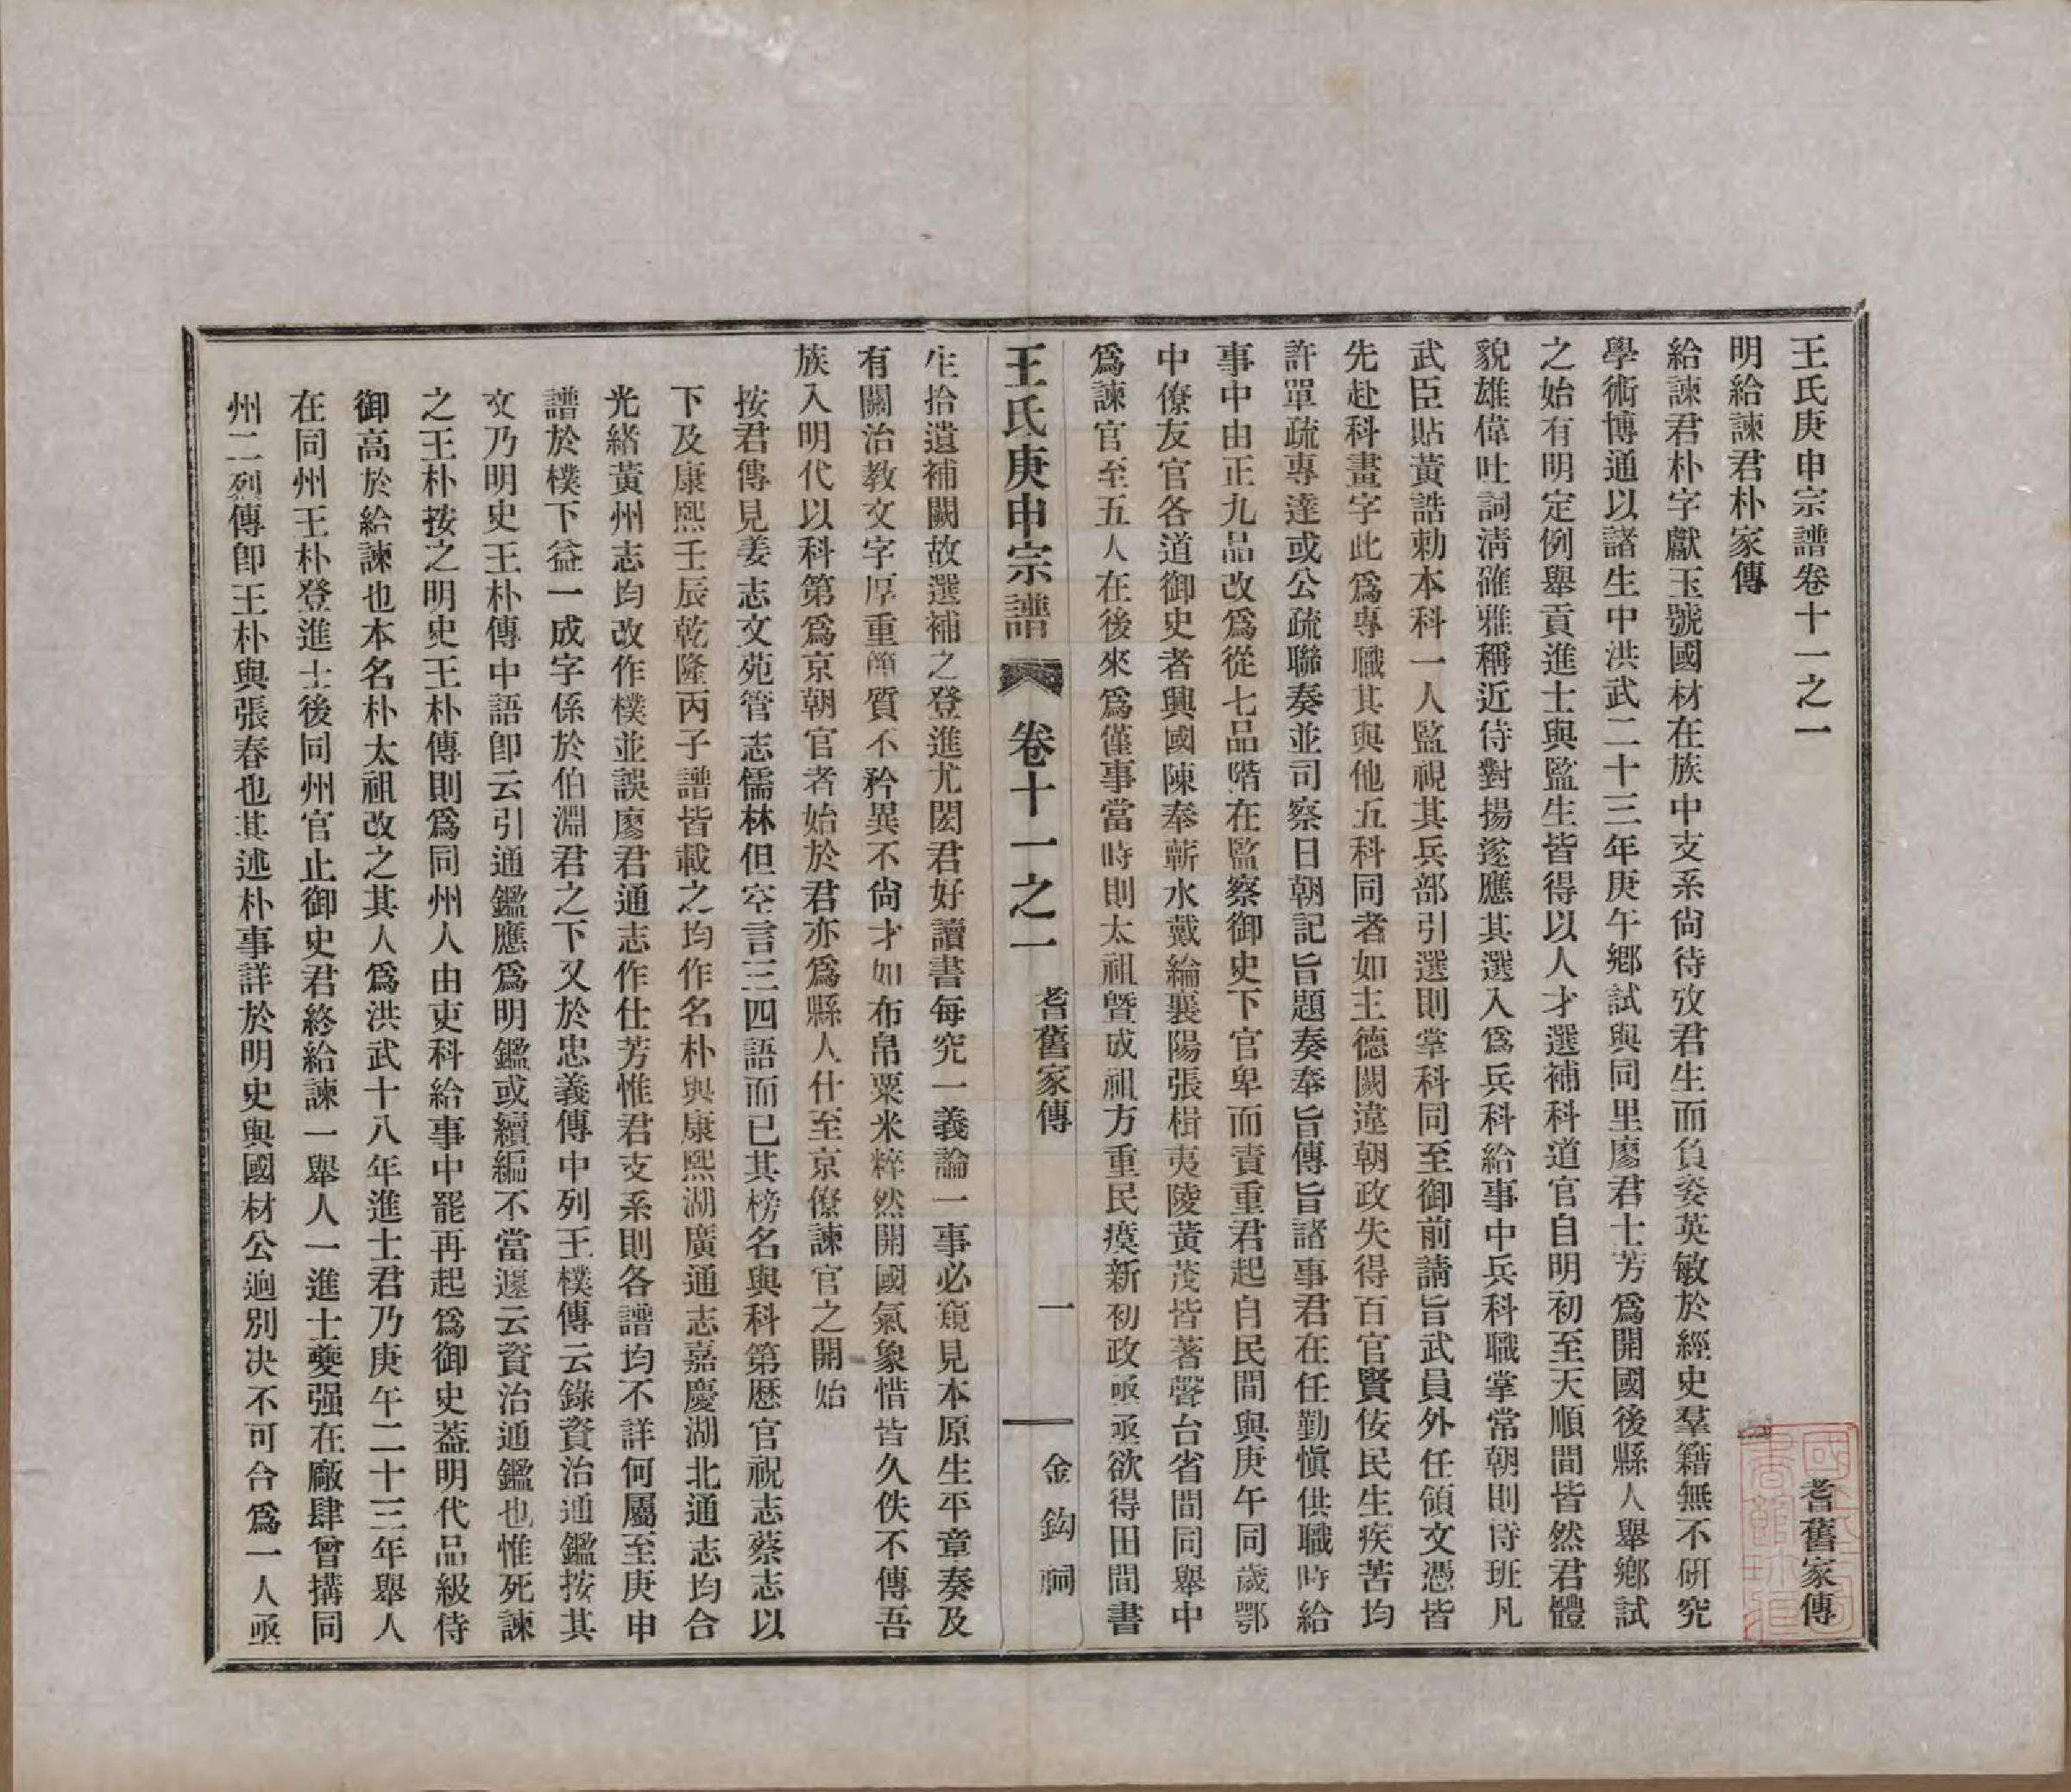 王氏庚申宗譜卷十一之一
耆舊家傳
明給諫君朴家傳
給諫君朴字獻玉號國材在族中支系尙待攷君生而負姿英敏於經史羣籍無不硏究
學術博通以諸生中洪武二十三年庚午鄕試與同里廖君士芳爲開國後縣人舉鄕試
之始有明定例舉貢進士與監生皆得以人才選補科道官自明初至天順間皆然君體
貌雄偉吐詞淸確雅稱近侍對揚遂應其選入爲兵科給事中兵科職掌常朝則侍班凡
武臣貼黃誥勅本科一人監視其兵部引選則掌科同至御前請旨武員外任領文憑皆
先赴科畫字此爲專職其與他五科同者如主德闕違朝政失得百官賢佞民生疾苦均
許單疏專達或公疏聯奏並司察日朝記旨題奏奉旨傳旨諸事君在任勤愼供職時給
事中由正九品改爲從七品階在監察御史下官卑而責重君起自民間與庚午同歲鄂
中僚友官各道御史者興國陳奉蘄水戴綸襄陽張楫夷陵黃茂皆著聲台省間同舉中
爲諫官至五人在後來爲僅事當時則太祖曁成祖方重民瘼新初政亟亟欲得田間書
王氏庚申宗譜 卷十一之一 耆舊家傳 一 金鈎祠
生拾遺補闕故選補之登進尤閎君好讀書每究一義論一事必窺見本原生平章奏及
有關治教文字厚重簡質不矜異不尙才如布帛粟米粹然開國氣象惜皆久佚不傳吾
族入明代以科第爲京朝官者始於君亦爲縣人仕至京僚諫官之開始
按君傳見姜志文苑管志儒林但空言三四語而已其榜名與科第歷官祝志蔡志以
下及康熙壬辰乾隆丙子譜皆載之均作名朴與康熙湖廣通志嘉慶湖北通志均合
光緒黃州志均改作樸並誤廖君通志作仕芳惟君支系則各譜均不詳何屬至庚申
譜於樸下益一成字係於伯淵君之下又於忠義傳中列王樸傳云錄資治通鑑按其
文乃明史王朴傳中語卽云引通鑑應爲明鑑或續編不當遽云資治通鑑也惟死諫
之王朴按之明史王朴傳則爲同州人由吏科給事中罷再起爲御史蓋明代品級侍
御高於給諫也本名朴太祖改之其人爲洪武十八年進士君乃庚午二十三年舉人
在同州王朴登進士後同州官止御史君終給諫一舉人一進士夔强在廠肆曾搆同
州二列傳卽王朴與張春也其述朴事詳於明史與國材公迥別决不可合爲一人亟